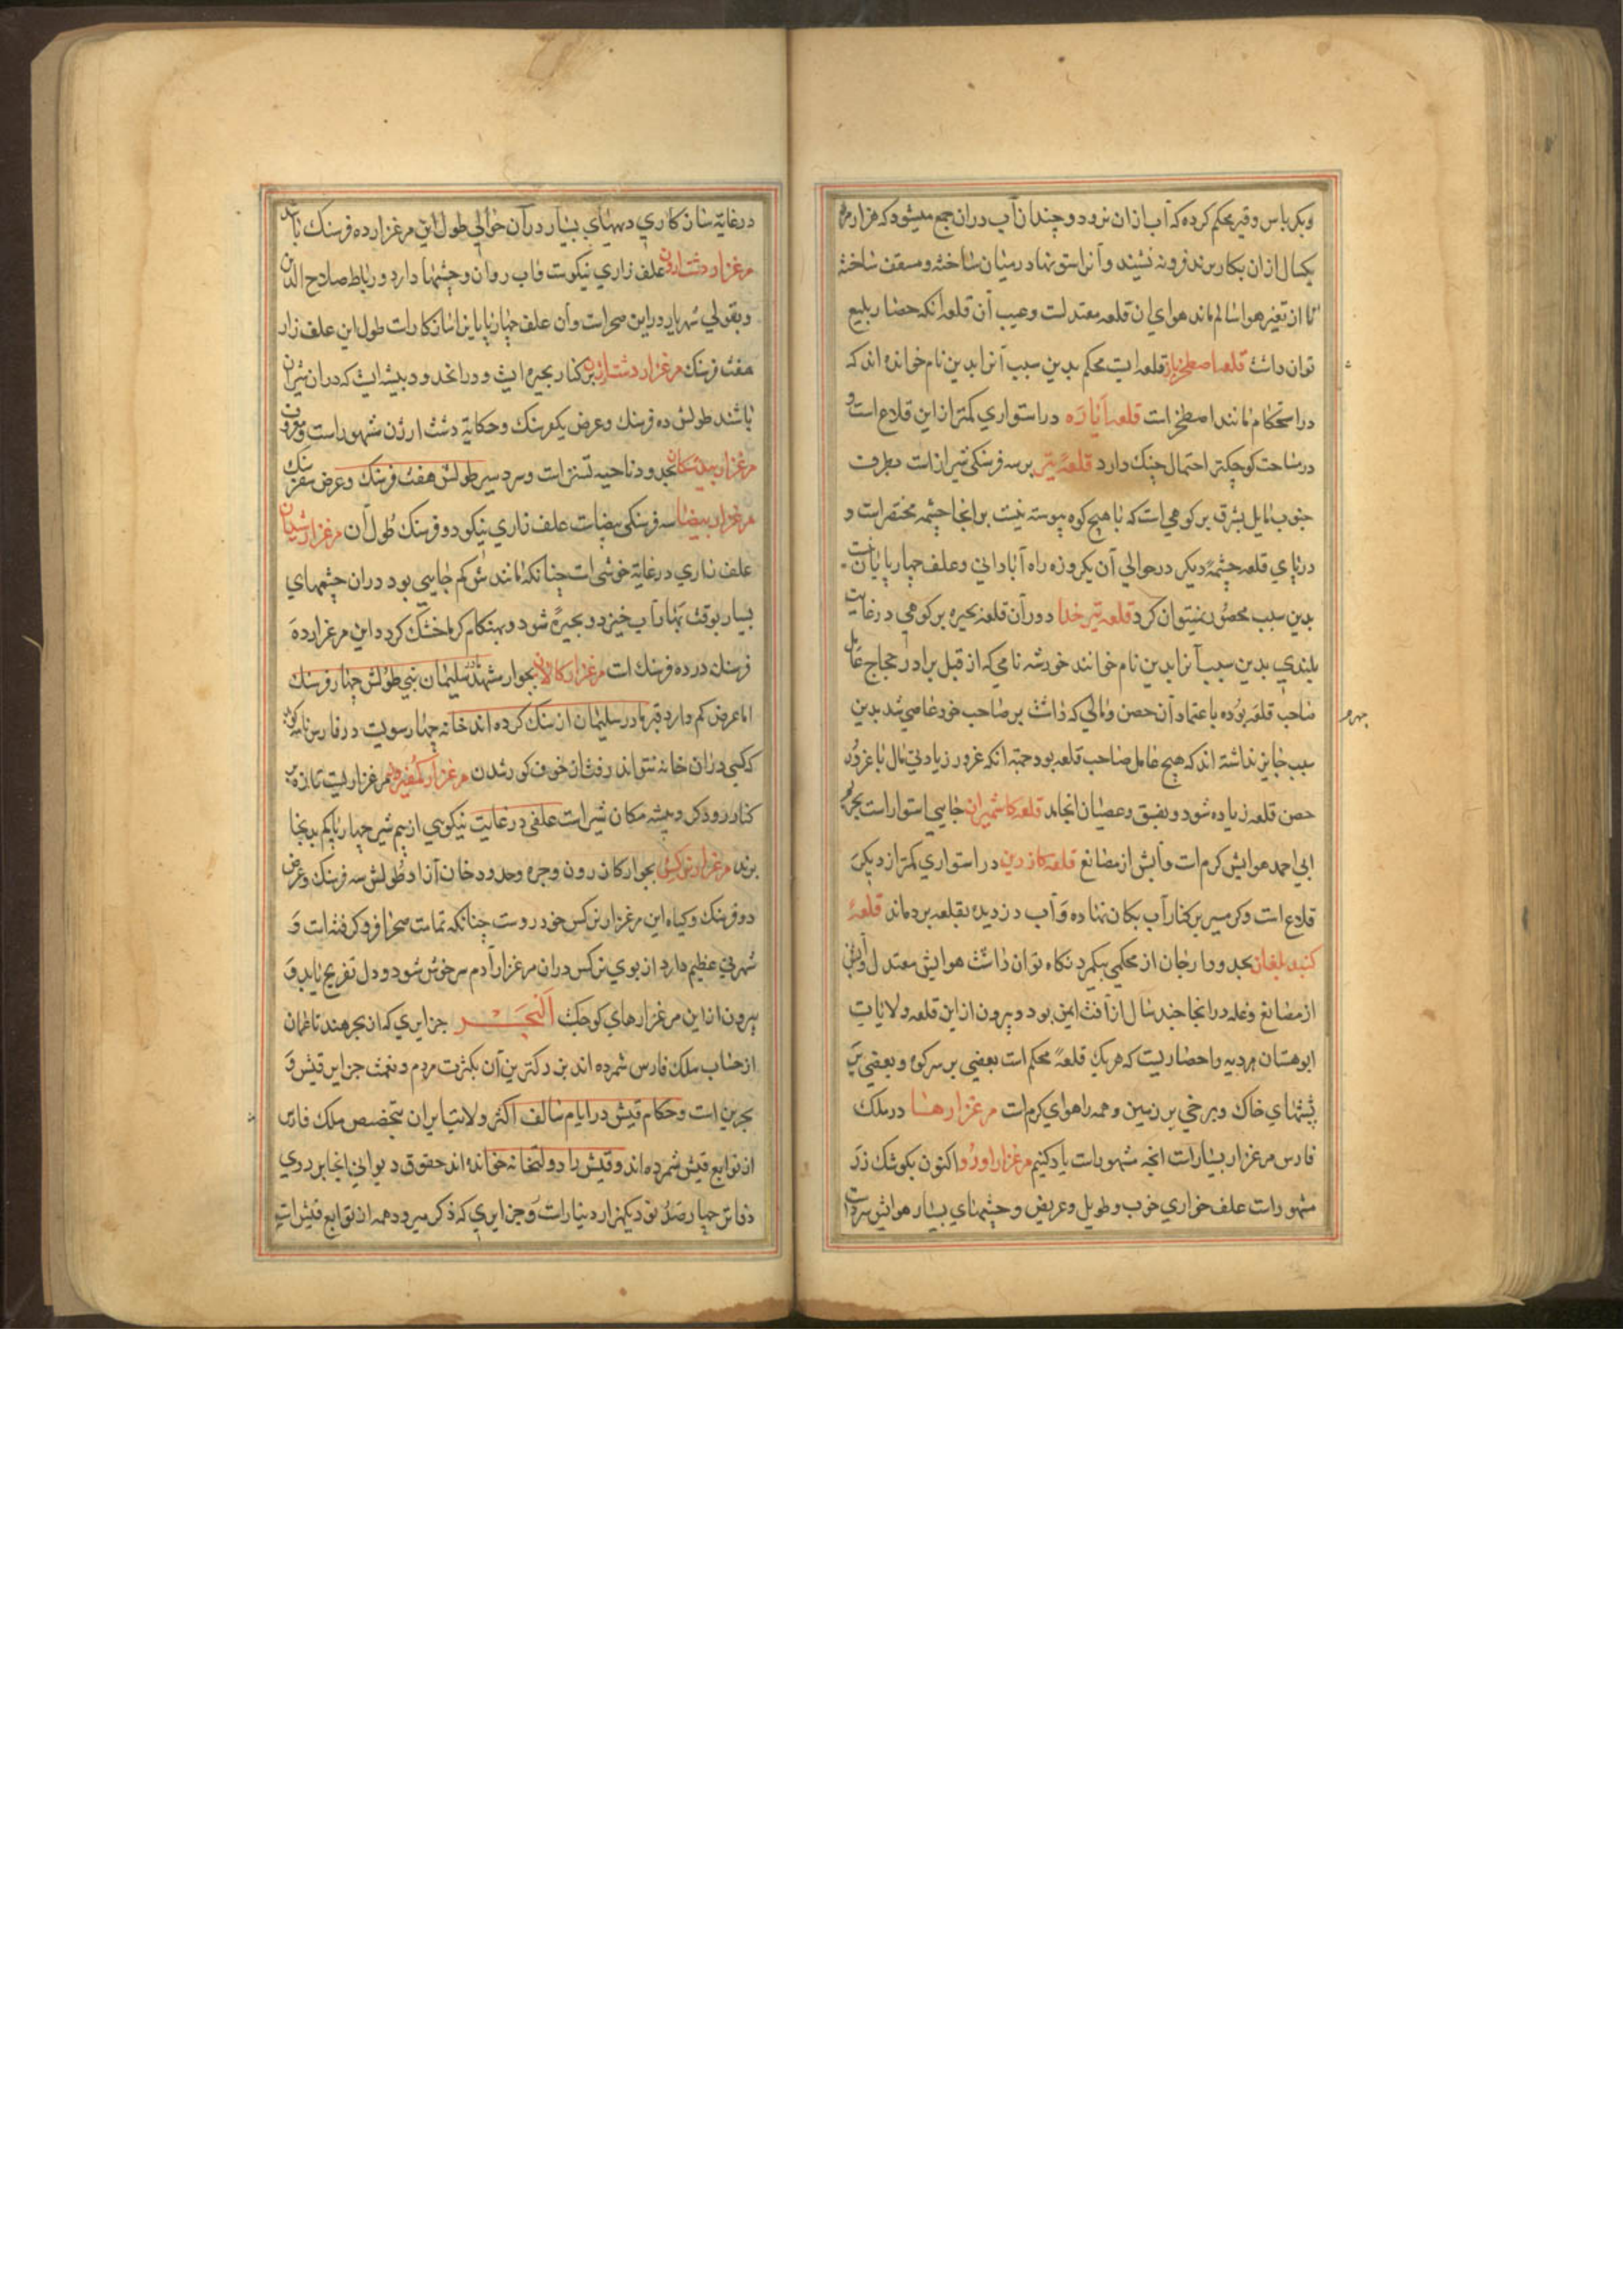 وبکرباس وقیر محکم کرده که آب ازان نرود و چندان آب دران جمع میشود که هزار مرد
یکسال ازان بکار برند فرونه نشیند وآنرا ستونها در میان ساخته و مسقف ساخته
تا از تغیر هوا سالم ماند هوای ان قلعه معتدلست وعیب آن قلعه آنکه حصار بلیع
توان داشت قلعه اصطخریار قلعه ایست محکم بدین سبب آنرا بدین نام خوانده اند که
در استحکام مانند اصطخر است قلعه آباره در استواری کمتر از این قلاع است و
در مساحت کوچکتر احتمال جنک دارد قلعهٔ تیر بر سه فرسنکی تیر از است بطرف
جنوب مایل بشرق بر کوهی است که با هیچ کوه پیوسته نیست بر انجا چشمه مختصر است و
در پای قلعه چشمهٔ دیکر در حوالی آن یکروزه راه آبادانی وعلف چهارپایانست
بدین سبب محصور نمیتوان کرد قلعه تیر خدا دوران قلعه بحیره بر کوهی در غایت
بلندی بدین سبب آنرا بدین نام خوانند خورشه نامی که از قبل برادر حجاج عامل
جهرم
صاحب قلعه بوده باعتماد آن حصن ومالی که داشت بر صاحب خود عاصی شد بدین
سبب جایز نداشته اند که هیچ عامل صاحب قلعه بود جهة انکه غرور زیادتی مال با غرور
حصن قلعه زیاده شود و بفسق وعصیان انجامد قلعه کاشمیران جایی استوار است بحرمه
ابی احمد هوایش کرم است وآبش از مصانع قلعه کازرین در استواری کمتر از دیکر
قلاع است وکرمسیر بر کنار آب بکان نهاده وآب دزدیده بقلعه برده اند قلعهٔ
کنبد بلغان بحدود ارجان از محکمی بیکمرد نکاه توان داشت هوایش معتدل وآبش
از مصانع وغله در انجا چند سال از آفت ایمن بود وبیرون از این قلعه ولایات
ابوهستان مردیه واحصاریست که هر یک قلعهٔ محکم است بعضی بر سر کوه وبعضی بر
پشتهای خاک وبرخی بر زمین وهمه را هوای کرم است مرغزارها در ملک
فارس مرغزار بسیار است انچه مشهور است یاد کنیم مرغزار اورد واکنون بکوشک زرد
مشهور است علف خواری خوب وطویل وعریض وچشمهای بسیار هوایش سرد است
در غایة سازکاری ودیهای بسیار در آن حوالی طول این مرغزار ده فرسنک باشد
مرغزار دشت ارزن علف زاری نیکوست وآب روان وچشمها دارد ورباط صلاح الدین
وبقولی شهریار در این صحراست وآن علف چهارپایانرا سازکار است طول این علف زار
هفت فرسنک مرغزار دشت ارزن بر کنار بحیره ایست ودرانحدود بیشه ایست که دران شیران
باشند طولش ده فرسنک وعرض یکفرسنک وحکایة دشت ارزن مشهور است ومعروف
مرغزار بیدمشکان بحدود ناحیه تستر است وسردسیر طولش هفت فرسنک وعرض سفرسنک
مرغزار بیضا سه فرسنکی بیضاست علف زاری نیکو دو فرسنک طول آن مرغزار شیدان
علف زاری در غایة خوشی است چنانکه مانندش کم جایی بود دران چشمهای
بسیار بوقت بهار آب خیزد وبحیرهٔ شود وبهنکام کرما خشک کردد این مرغزار ده
فرسنک در ده فرسنک است مرغزار کالان بجوار مشهد مادر سلیمان نبی طولش چهار فرسنک
اما عرض کم دارد قبر مادر سلیمان از سنک کرده اند خانه چهار سویست در فارس نامه کوید
که کسی دران خانه نتواند رفت از خوف کور شدن مرغزار کمفیروز مرغزاریست تازه بر
کنار رود کر وبیشه مکان شیر است علفی در غایت نیکویی از بیم شیر چهارپا کم بدینجا
برند مرغزار نرکس بجوار کازرون وجره وحدود خان آزاد طولش سه فرسنک وعرض
دو فرسنک وکیاه این مرغزار نرکس خودروست چنانکه تمامت صحرا فروکرفته است و
شهرتی عظیم دارد از بوی نرکس دران مرغزار آدم سرخوش شود ودل تفریح یابد و
بیرون از این مرغزارهای کوچکست البحر جزایری که از بحر هند تا عمان
از حساب ملک فارس شمرده اند بزرکترین آن بکثرت مردم ونعمت جزایر قیش و
بحرین است وحکام قیش در ایام سالف اکثر ولایت ایران بتخصیص ملک فارس
از توابع قیش شمرده اند وقیش را دولتخانه خوانده اند حقوق دیوانی انجا بر روی
دفاتر چهارصد نود یکهزار دینار است وجزایری که ذکر میرود همه از توابع قیش است